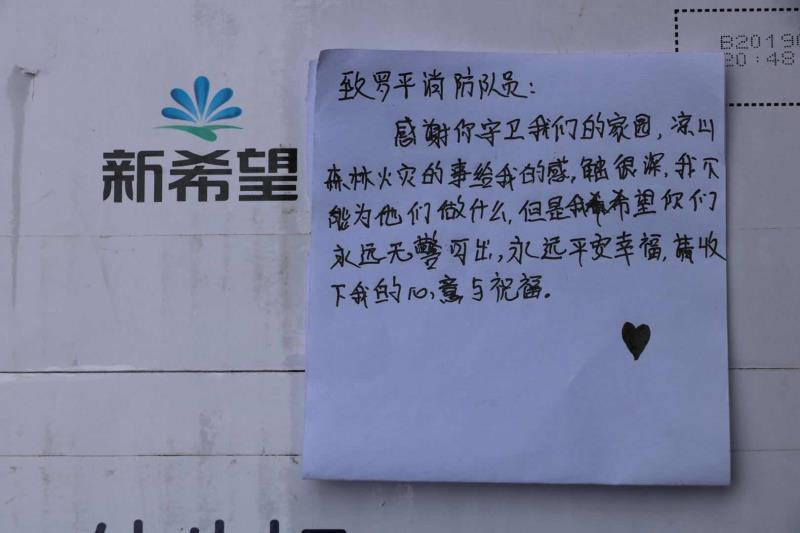 B20190
20:48
新希望
致罗平消防队员：
感谢你守卫我们的家园，凉山
森林火灾的事给我的感，触很深，我不
能为他们做什么，但是我希望你们
永远无警可出，永远平安幸福，请收
下我的心意与祝福。